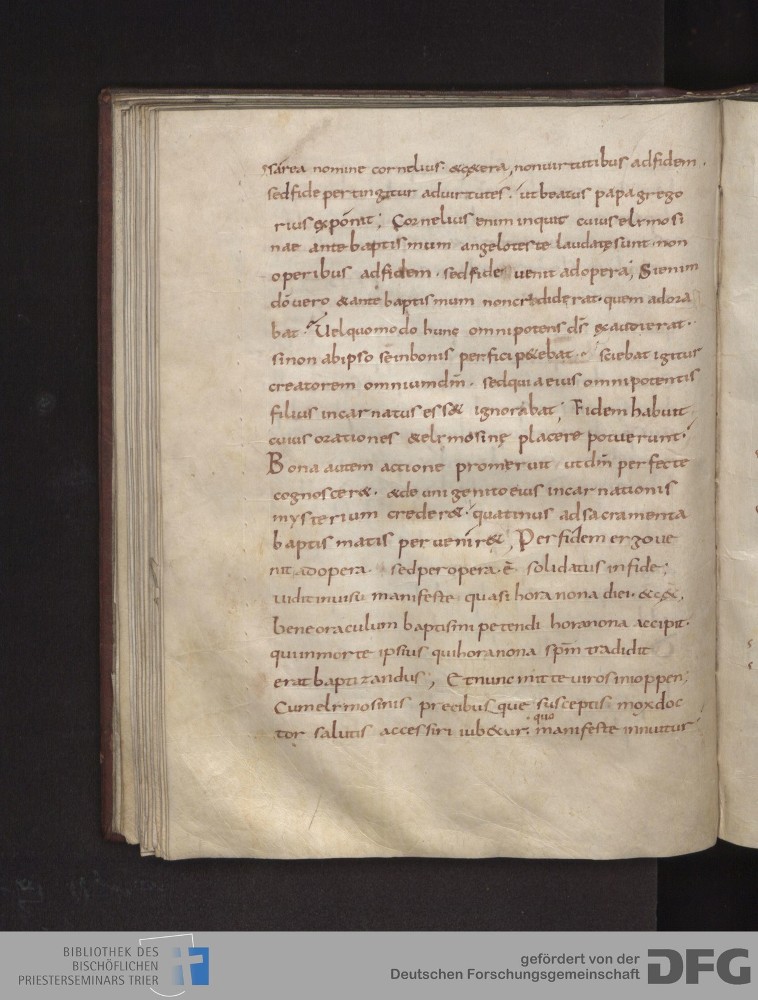 sarea nomine cornelius. &c&era, nonuirtutibus adfidem.
sedfide pertingitur aduirtutes. ut beatus papa grego
rius exponit; Cornelius enim inquit cuius elemosi
nae ante baptismum angelo teste laudatę sunt. non
operibus adfidem. sedfide uenit adopera; Sienim
dō uero & ante baptismum non crediderat. quem adora
bat. Uelquomodo hunc omnipotens ds̄ exaudierat.
sinon abipso se inbonis perfici p&ebat. sciebat igitur
creatorem omnium dm̄. sedquia eius omnipotentis
filius incarnatus ess& ignorabat; Fidem habuit
cuius orationes & elemosinę placere potuerunt.
Bona autem actione promeruit ut dm̄ perfecte
cognoscer&. & de unigenito eius incarnationis
mysterium creder&. quatinus ad sacramenta
baptismatis peruenir&, Per fidem ergo ue
nit adopera. sed per opera. ē solidatus infide;
uidit inuisu manifeste quasi hora nona diei. &c&,
bene oraculum baptismi petendi hora nona accipit.
qui in morte ipsius qui hora nona spm̄ tradidit
erat baptizandus; Et nunc mitte uiros inioppen;
Cum elemosinis precibusque susceptis mox doc
tor salutis accersiri iub&ur. quo manifeste innuitur
BIBLIOTHEK DES
BISCHÖFLICHEN
PRIESTERSEMINARS TRIER
gefördert von der
Deutschen Forschungsgemeinschaft DFG